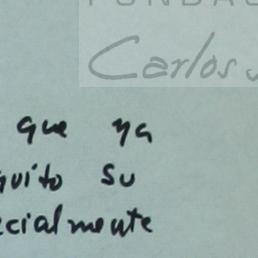 FUNDAC
Carlos
que ya
uito su
cialmente